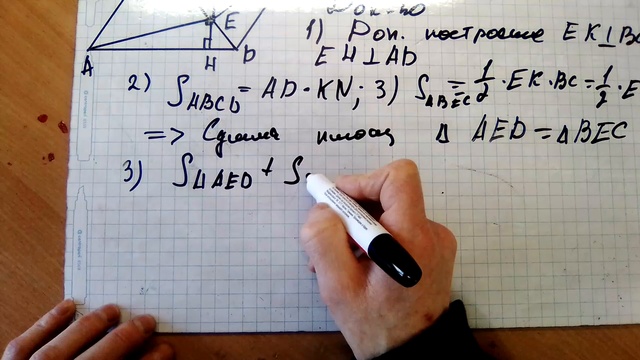 Док-во
E
A
H
D
1) Доп. построение EK⊥BC
EH⊥AD
2) SABCD = AD · KH; 3) S△BEC = 1/2 · EK · BC = 1/2 · E
=> Сумма площ △ AED = △ BEC
3) S△AED + S